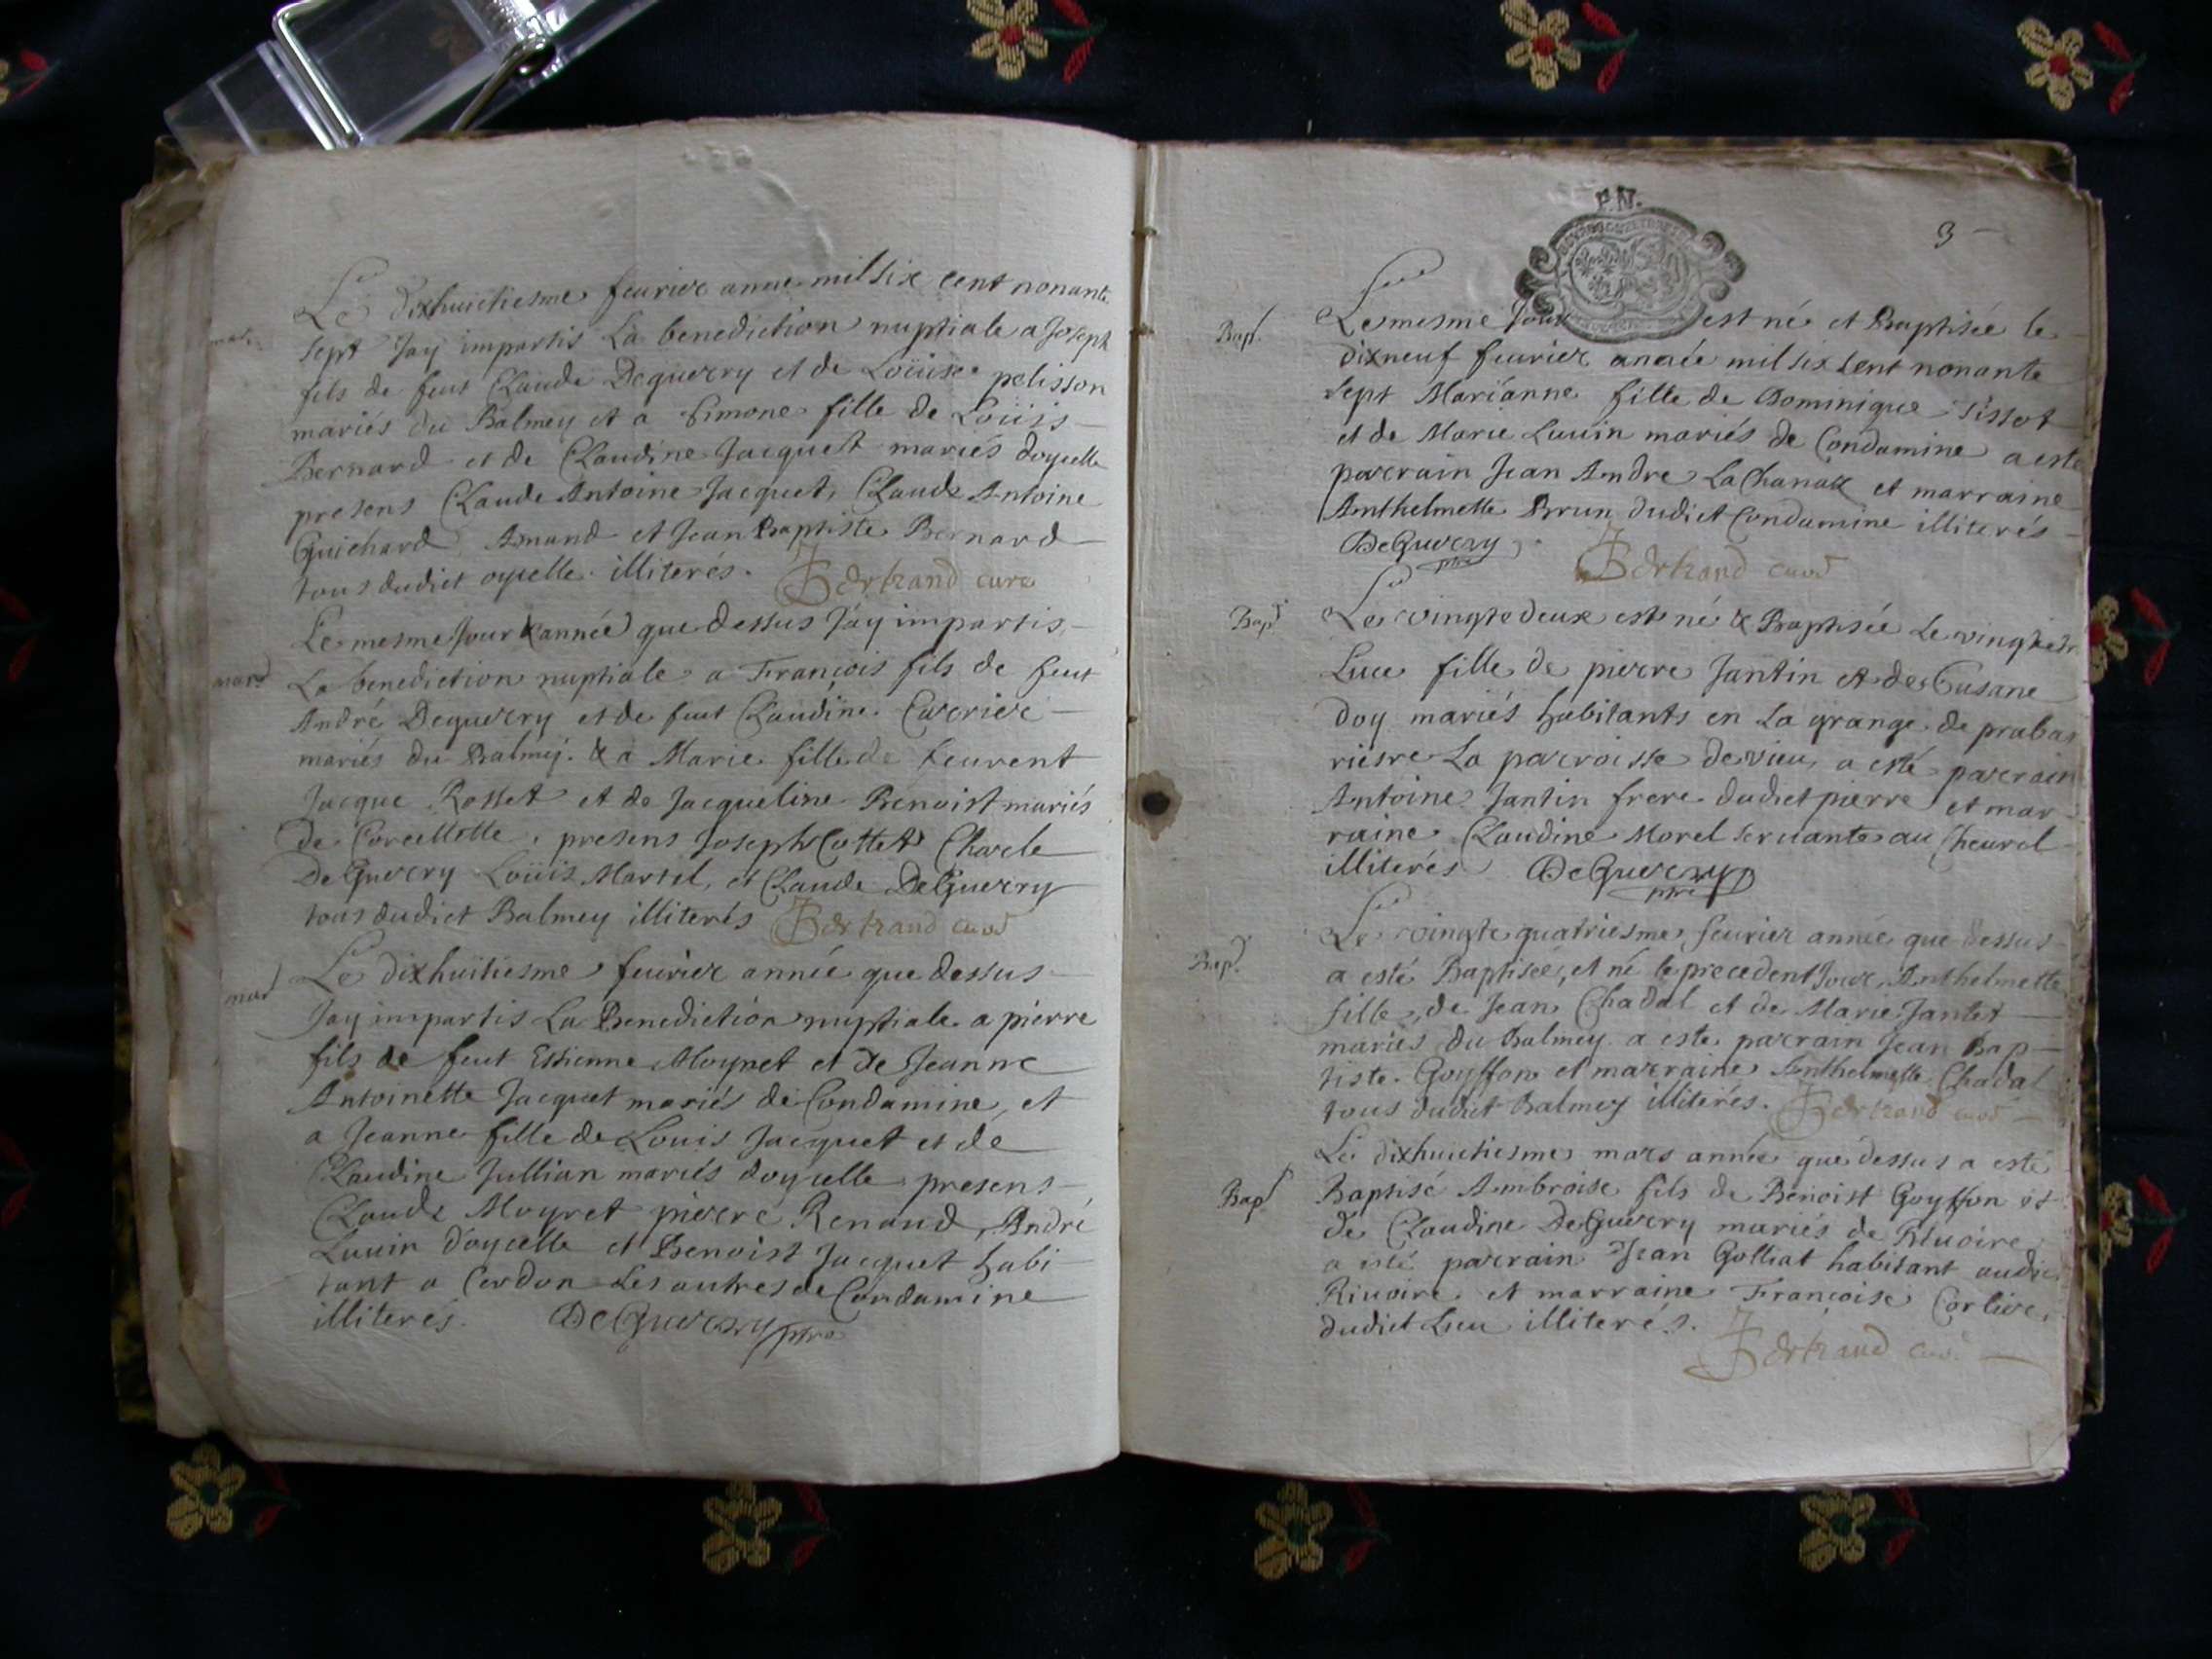 Le dixhuictiesme feurier annee mil six cent nonante
mar.
sept Jay impartis La benediction nuptiale a Joseph
fils de feut Claude Deguerry et de Loüise pelisson
mariés du Balmey et a Simone fille de Loüis
Bernard et de Claudine Jacquet mariés doycelle
presens Claude Antoine Jacquet, Claude Antoine
Guichard Amand et Jean Baptiste Bernard
tous dudict oycelle illiterés. Bertrand cure
Le mesme Jour & année que dessus Jay impartis
mar
La benediction nuptiale a François fils de feut
André Deguerry et de feut Claudine Carrier
mariés du Balmey. & a Marie fille de feurent
Jacque Rosset et de Jacqueline Benoist mariés
de Corcellette, presens Joseph Cottet Charle
DeGuerry Loüis Martel, et Claude DeGuerry
tous dudict Balmey illiterés Bertrand curé
Le dixhuitiesme feurier année que dessus
mar
Jay impartis La Benediction nuptiale a pierre
fils de feut Estienne Moyret et de Jeanne
Antoinette Jacquet mariés de Condamine, et
a Jeanne fille de Louis Jacquet et de
Claudine Jullian mariés doycelle presens
Claude Moyret pierre Renaud, André
Luuin doycelle et Benoist Jacquet habi
tant a Cerdon Les autres de Condamine
illiterés. DeGuerry ptre
P.N.
3
Bap.
Le mesme Jour est né et Baptisée le
dixneuf feurier année mil six Cent nonante
sept Marianne fille de Dominique Tissot
et de Marie Luuin mariés de Condamine a esté
parrain Jean Andre LaChanal et marraine
Anthelmette Brun dudict Condamine illiterés
DeGuerry ptre Bertrand curé
Bap.
Le vingte deux est né & Baptisée Le vingte
Luce fille de pierre Jantin et de Susane
Doy mariés habitants en La grange de prabar
riesre La parroisse de vieu, a esté parrain
Antoine Jantin frere dudict pierre et mar
raine Claudine Morel seruante au Cheurel
illiterés DeGuerry ptre
Bap.
Le vingte quatriesme feurier année que dessus
a esté Baptisée, et né le precedent Jour Anthelmette
fille de Jean Chadal et de Marie Jantet
mariés du Balmey a esté parrain Jean Bap
tiste Goyffon et marraine Anthelmette Chadal
tous dudict Balmey illiterés. Bertrand curé
Le dixhuictiesme mars année que dessus a esté
Bap
Baptisé Ambroise fils de Benoist Goyffon et
de Claudine DeGuerry mariés de Riuoire
a esté parrain Jean Golliat habitant audic
Riuoire. et marraine Françoise Corlier,
dudict Lieu illiterés.
Bertrand curé